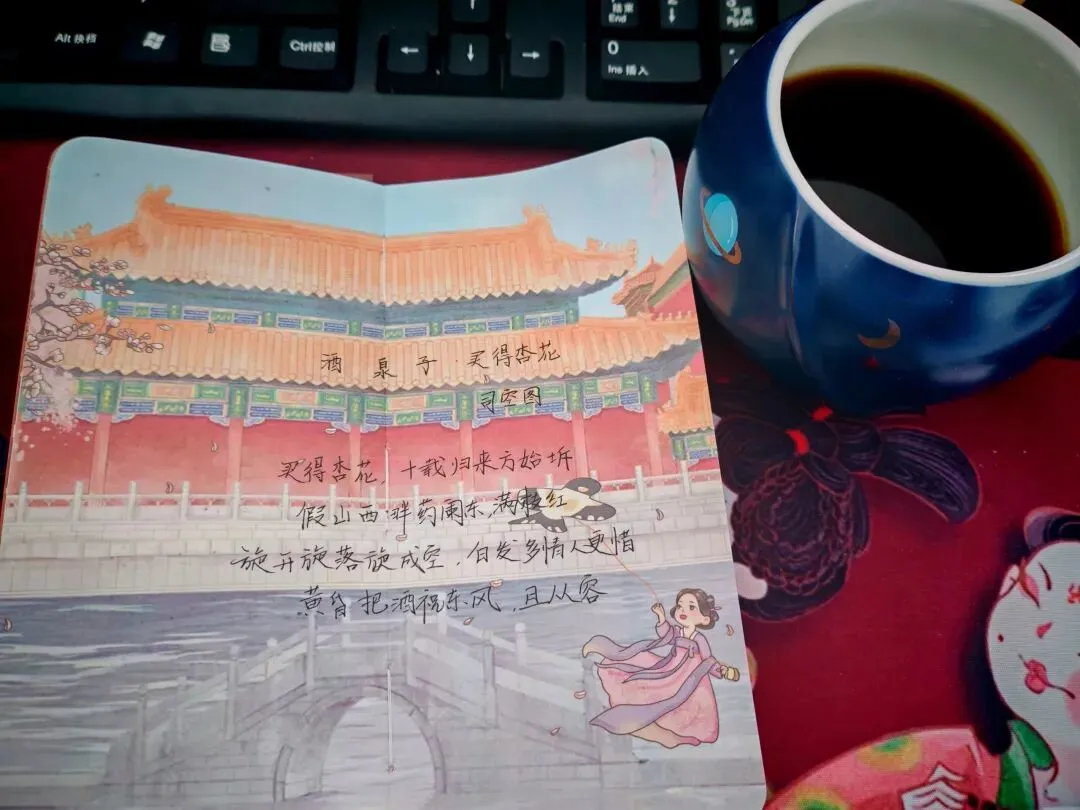 Alt 换档
Ctrl控制
↑
←
↓
→
结束
End
↓
下页
PgDn
0
Ins 插入
酒泉子·买得杏花
司空图
买得杏花，十载归来方始坼
假山西畔药阑东，满枝红
旋开旋落旋成空，白发多情人更惜
黄昏把酒祝东风，且从容